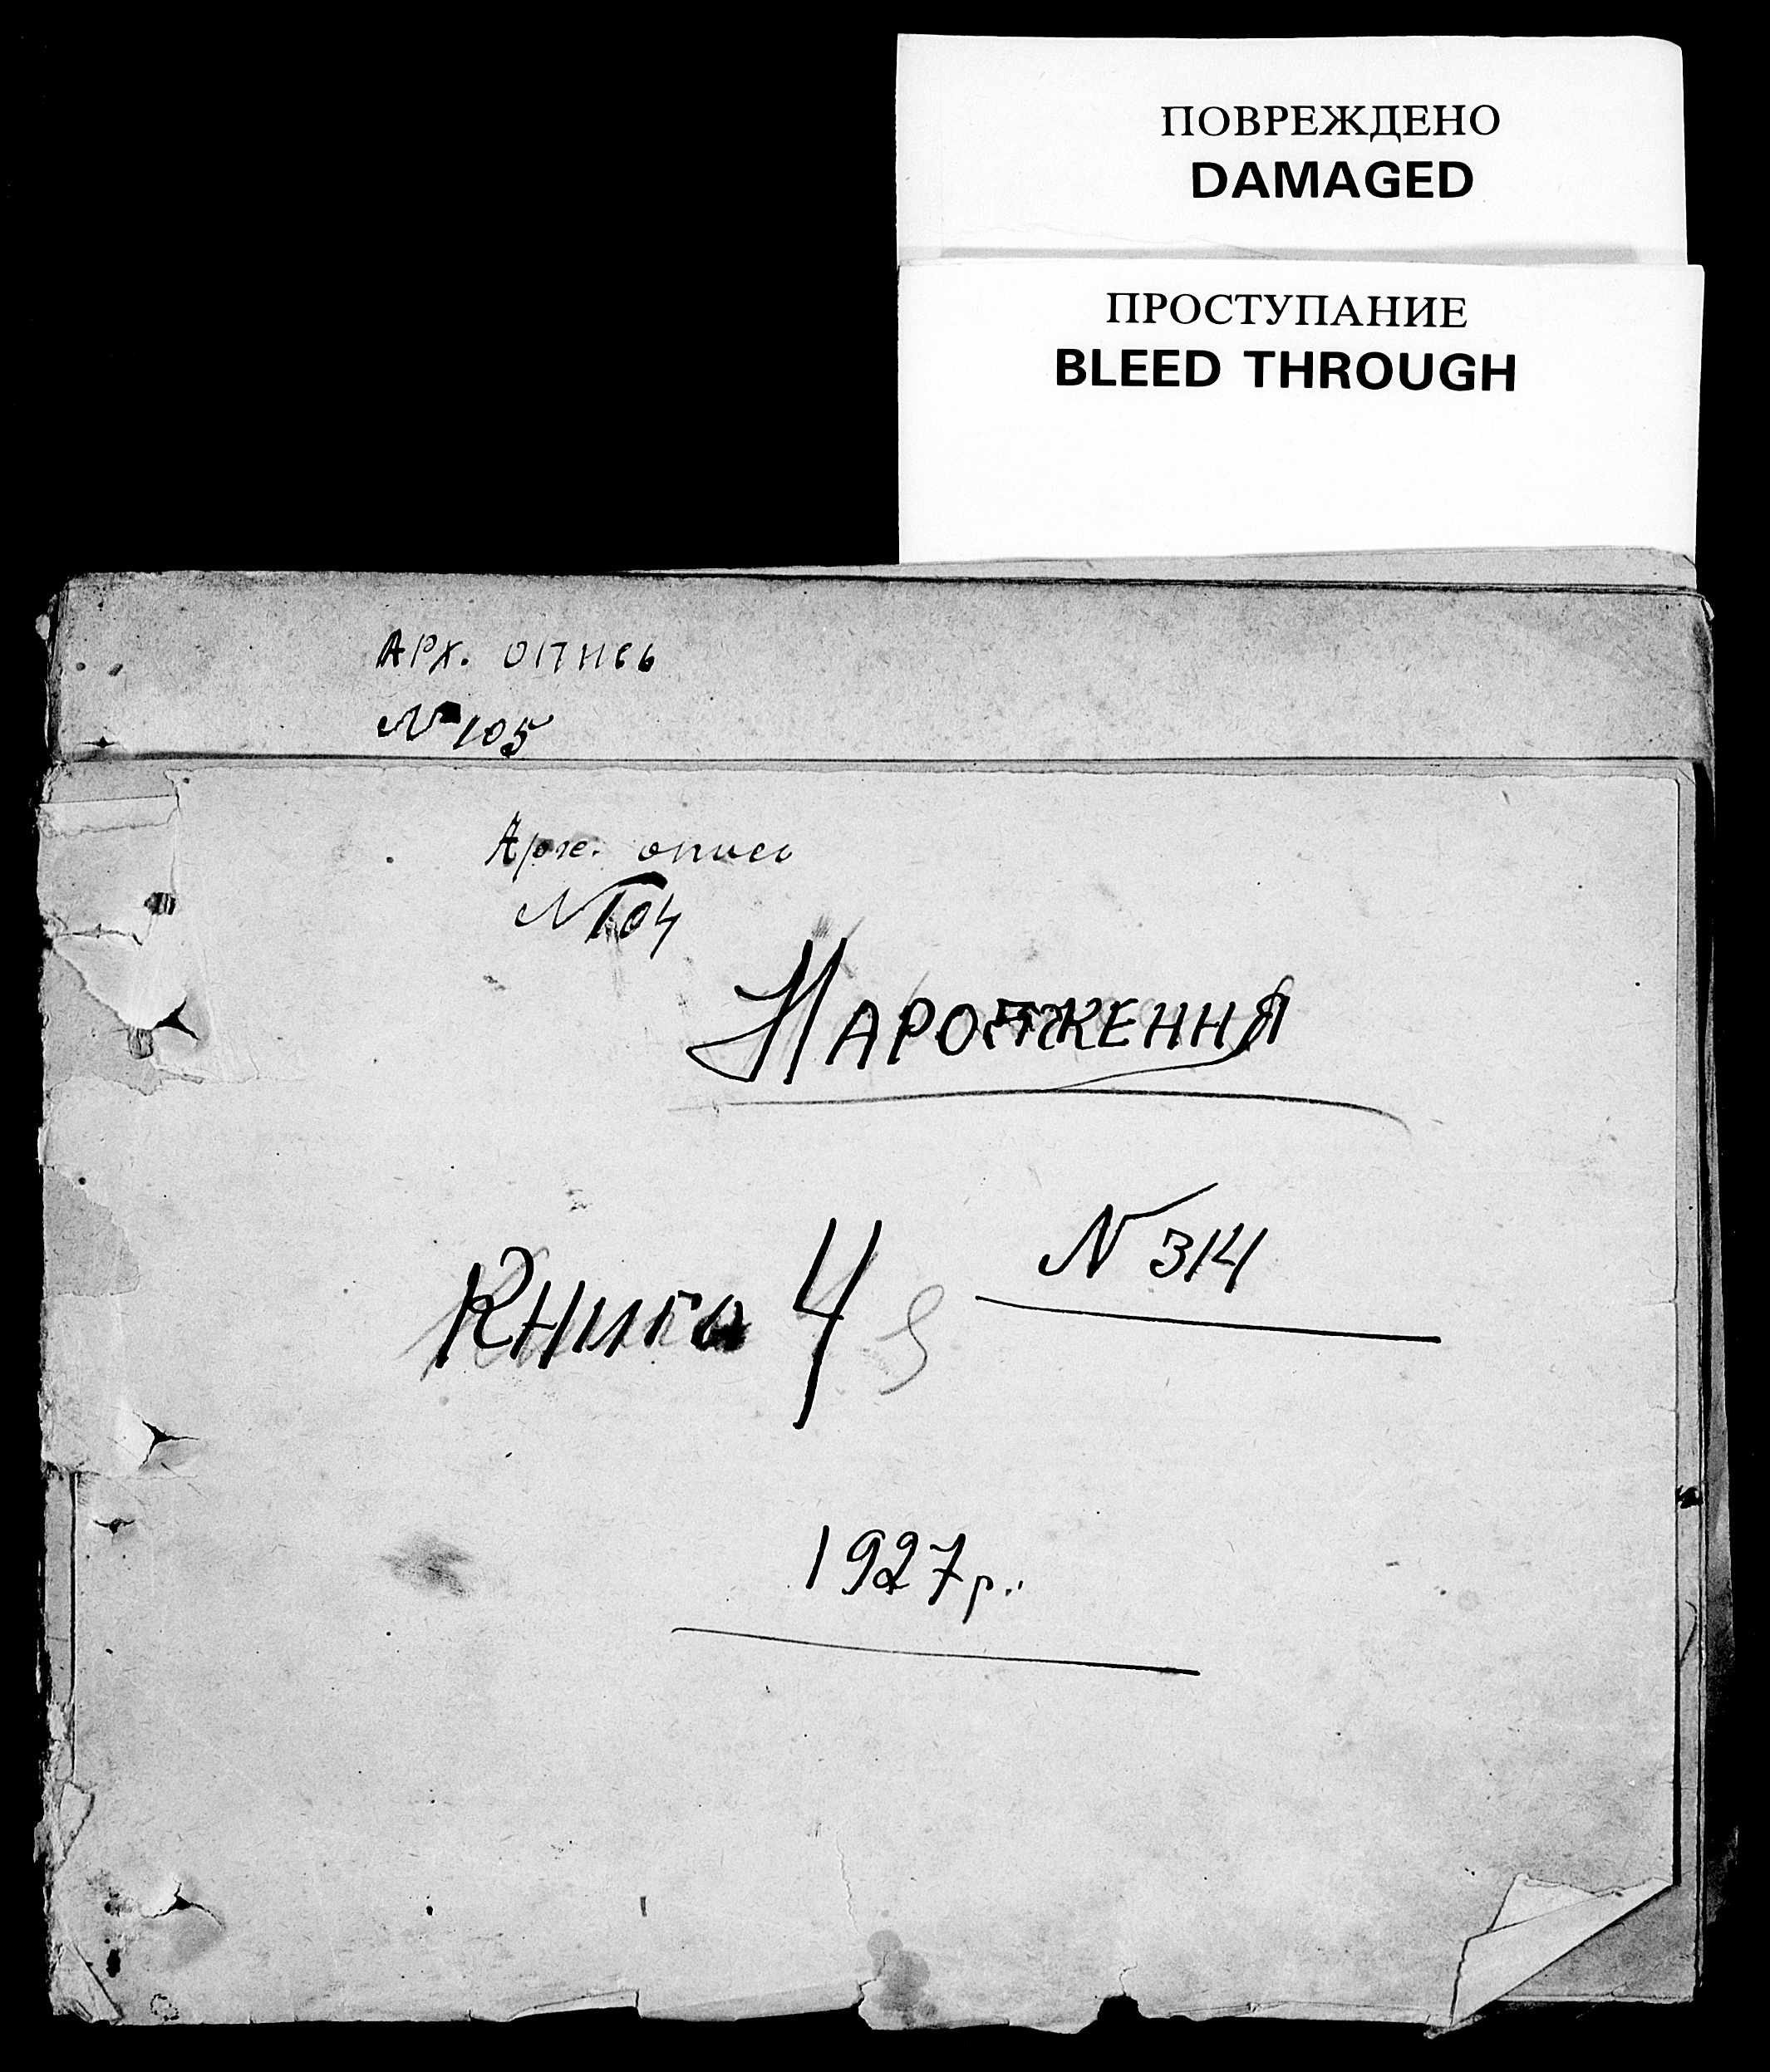 ПОВРЕЖДЕНО
DAMAGED
ПРОСТУПАНИЕ
BLEED THROUGH
Арх. опись
№ 105
Арх. опись
№ 104
Народження
N 314
Книга 4
1927 р.